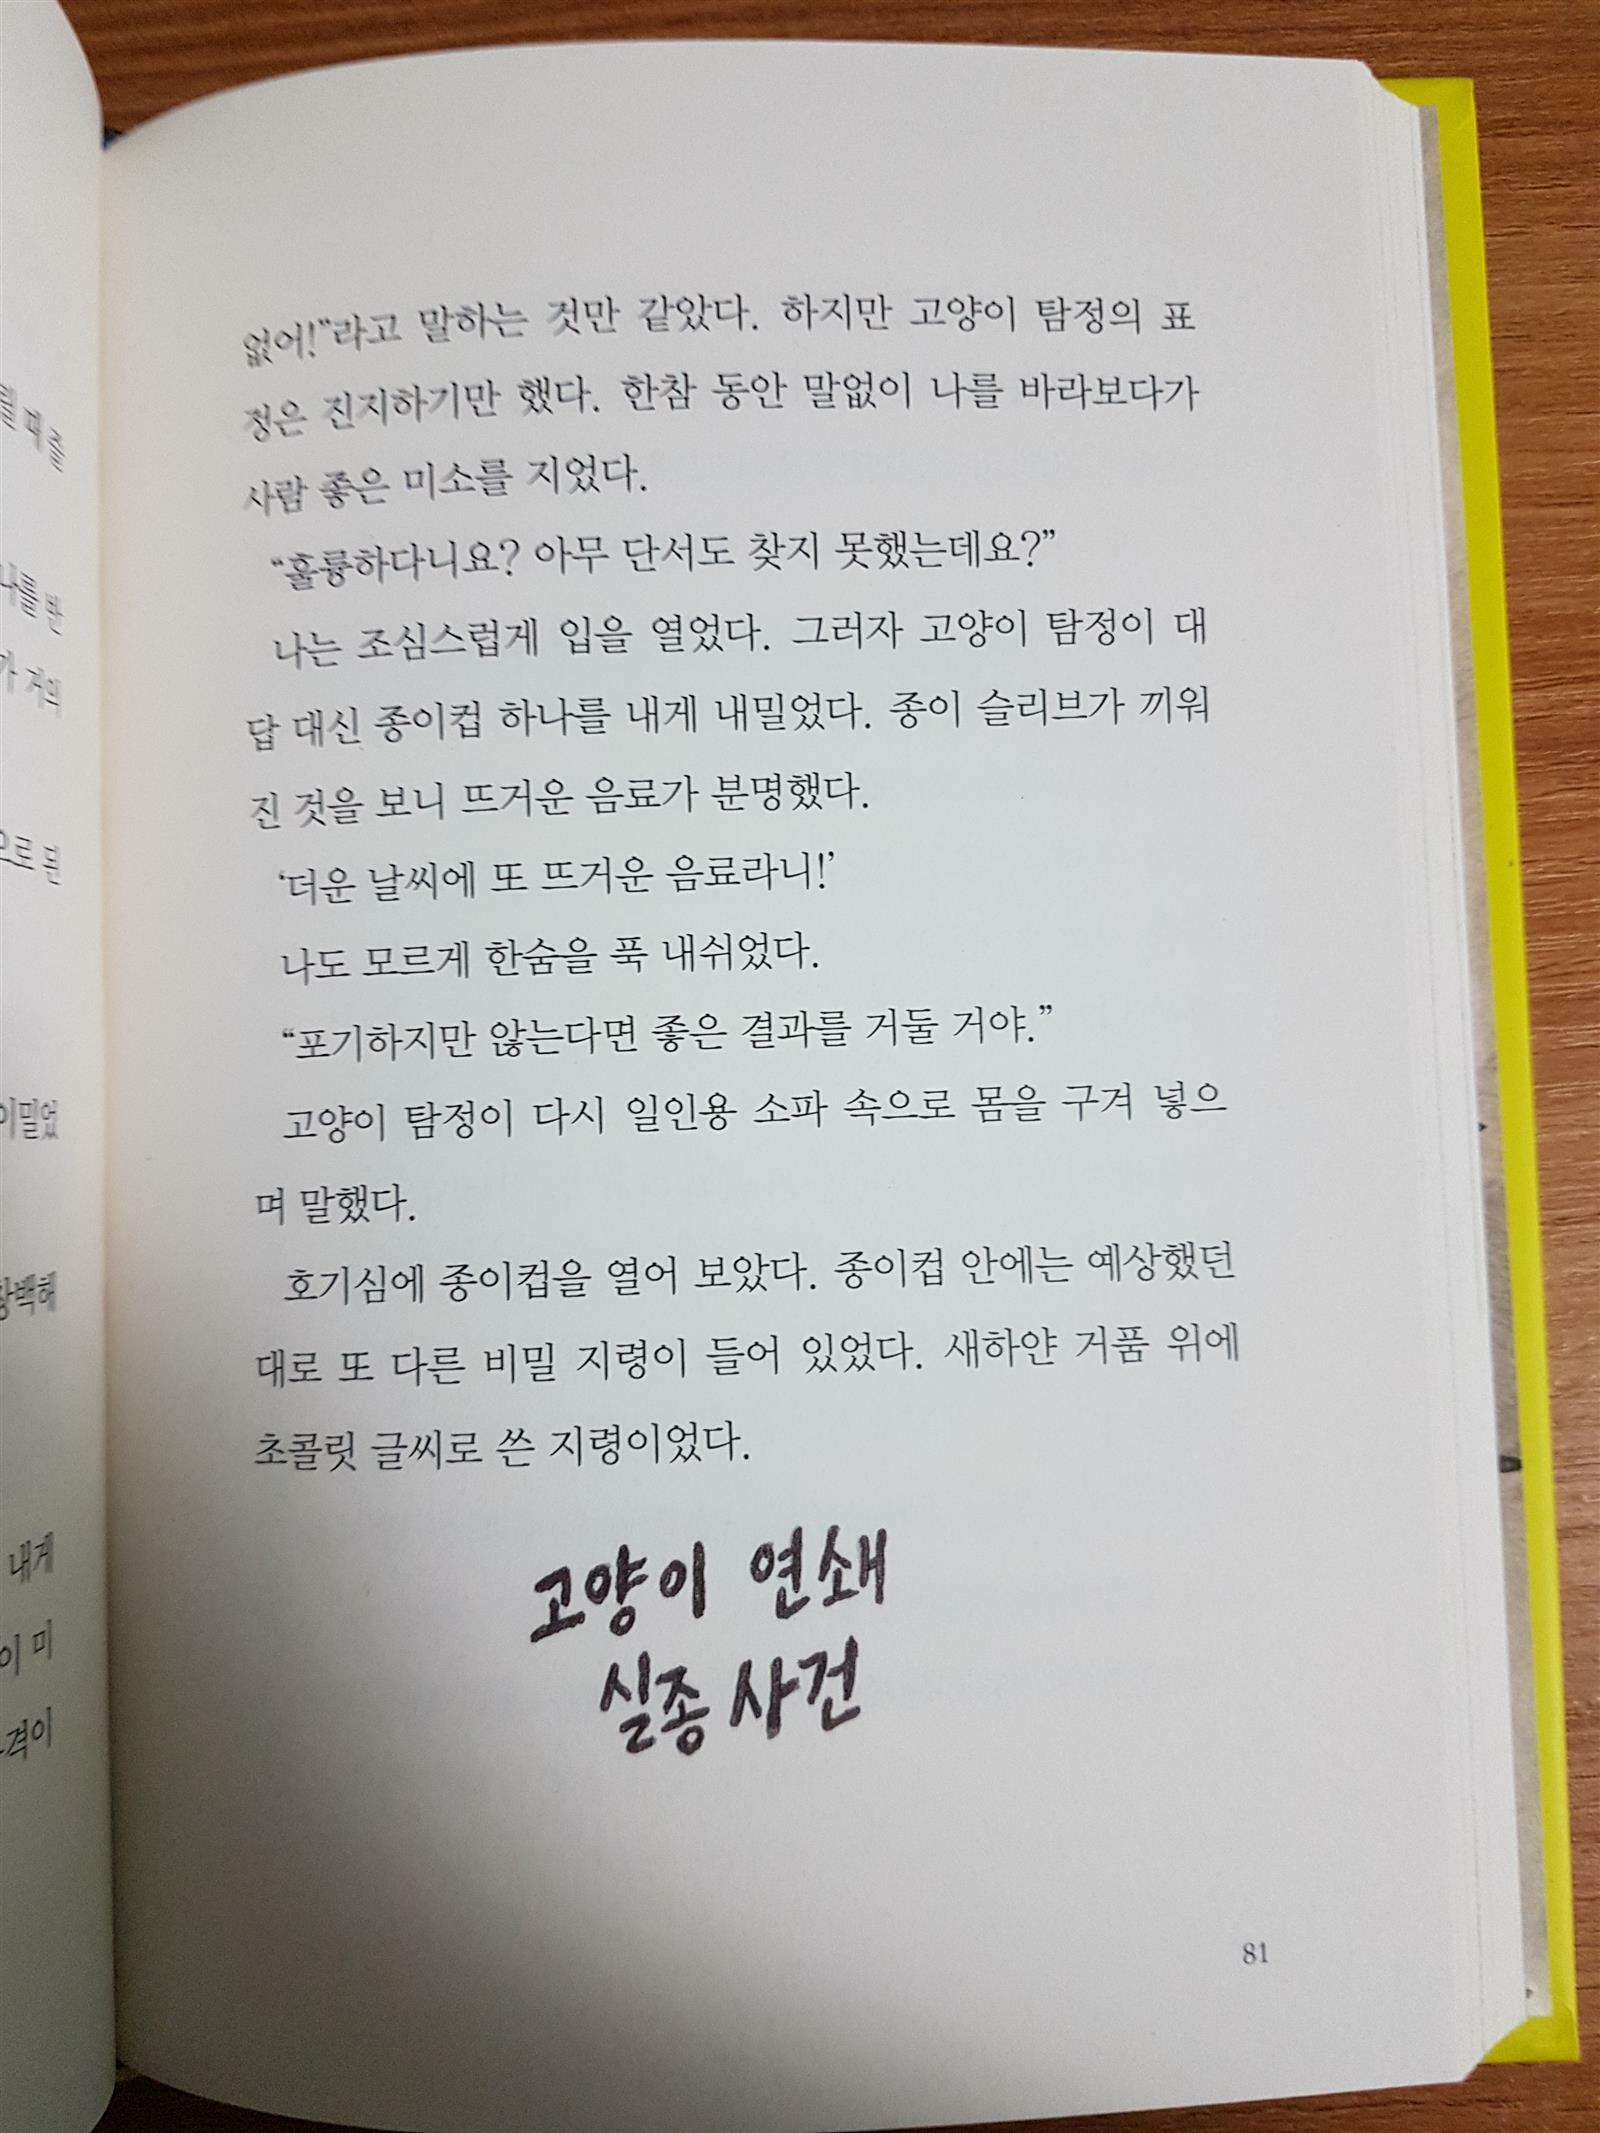 없어!”라고 말하는 것만 같았다. 하지만 고양이 탐정의 표
정은 진지하기만 했다. 한참 동안 말없이 나를 바라보다가
사람 좋은 미소를 지었다.
“훌륭하다니요? 아무 단서도 찾지 못했는데요?”
나는 조심스럽게 입을 열었다. 그러자 고양이 탐정이 대
답 대신 종이컵 하나를 내게 내밀었다. 종이 슬리브가 끼워
진 것을 보니 뜨거운 음료가 분명했다.
‘더운 날씨에 또 뜨거운 음료라니!’
나도 모르게 한숨을 푹 내쉬었다.
“포기하지만 않는다면 좋은 결과를 거둘 거야.”
고양이 탐정이 다시 일인용 소파 속으로 몸을 구겨 넣으
며 말했다.
호기심에 종이컵을 열어 보았다. 종이컵 안에는 예상했던
대로 또 다른 비밀 지령이 들어 있었다. 새하얀 거품 위에
초콜릿 글씨로 쓴 지령이었다.
고양이 연쇄
실종 사건
81